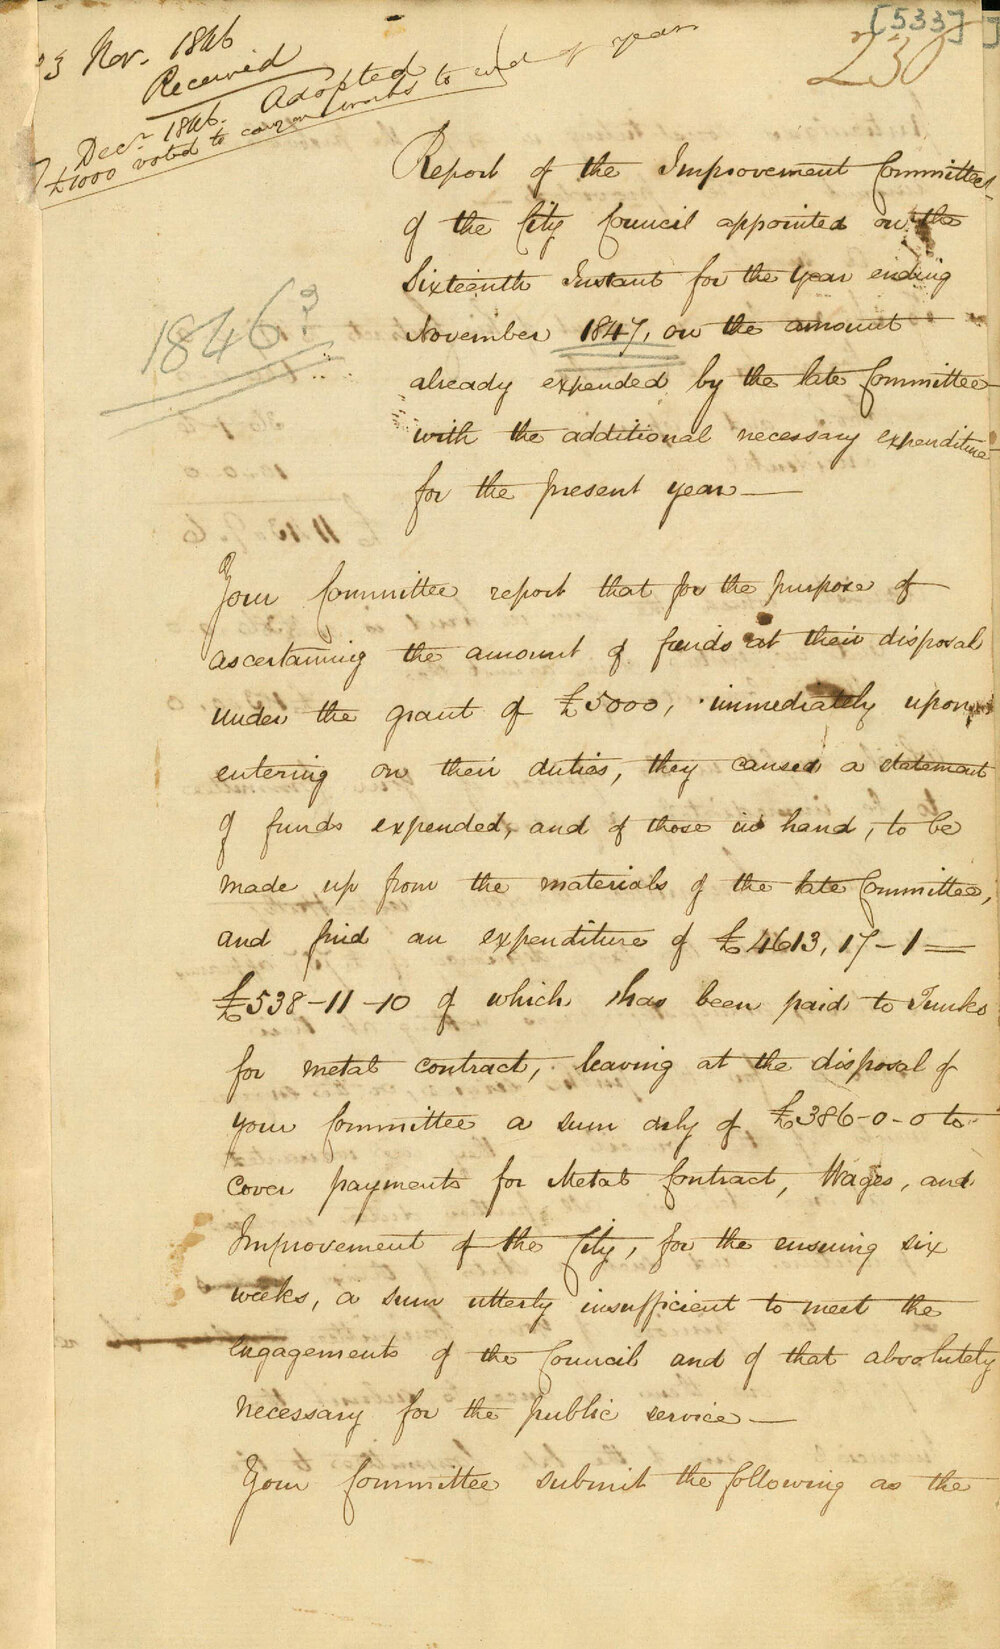 23 Nov. 1846
Received
7 Decr 1846. Adopted
£1000 voted to carry on works to end of year
[533]
230
1846?
Report of the Improvement Committee
of the City Council appointed on the
Sixteenth Instant for the year ending
November 1847, on the amount
already expended by the late Committee
with the additional necessary expenditure
for the present year—
Your Committee report that for the purpose of
ascertaining the amount of funds at their disposal
under the grant of £5000, immediately upon
entering on their duties, they caused a statement
of funds expended, and of those in hand, to be
made up from the materials of the late Committee,
and find an expenditure of £4613, 17-1=
£538-11-10 of which has been paid to Junks
for metal contract, leaving at the disposal of
your Committee a sum only of £386-0-0 to
cover payments for Metal Contract, Wages, and
Improvement of the City, for the ensuing six
weeks, a sum utterly insufficient to meet the
engagements of the Council and of that absolutely
necessary for the public service—
Your Committee submit the following as the